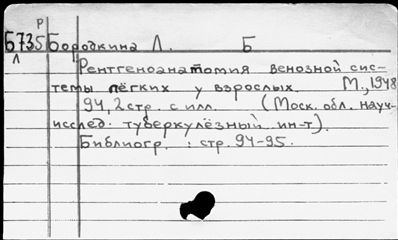 Р
Б735 Бородкина Л. Б
Л
Рентгеноанатомия венозной сис-
темы лёгких у взрослых. М., 1948
94, 2 стр. с илл. (Моск. обл. науч-
исслед. туберкулёзный ин-т).
Библиогр. : стр. 94-95.